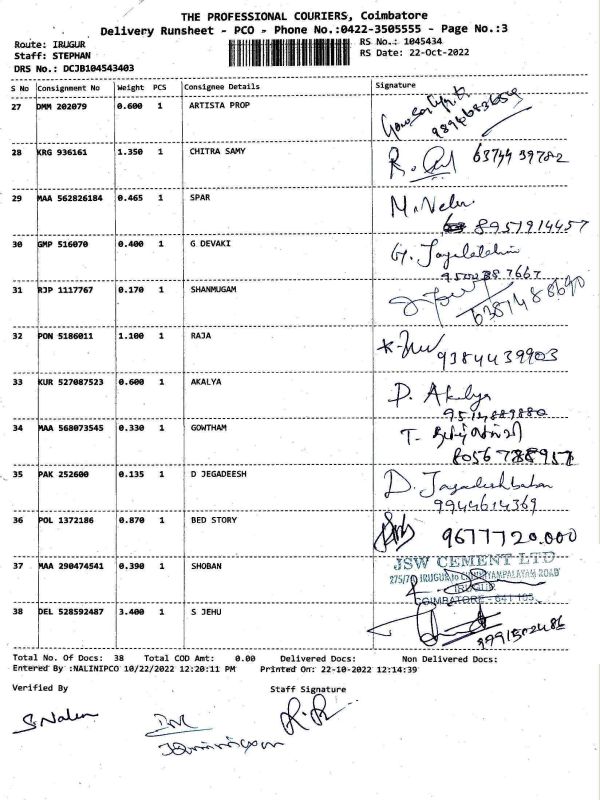 THE PROFESSIONAL COURIERS, Coimbatore
Delivery Runsheet - PCO - Phone No.:0422-3505555 - Page No.:3
Route: IRUGUR RS No.: 1045434
Staff: STEPHAN RS Date: 22-Oct-2022
DRS No.: DCJB104543403
S No Consignment No Weight PCS Consignee Details Signature
27 DMM 202079 0.600 1 ARTISTA PROP
28 KRG 936161 1.350 1 CHITRA SAMY 63744 39782
29 MAA 562826184 0.465 1 SPAR M. Velu
8951914457
30 GMP 516070 0.400 1 G DEVAKI
31 RJP 1117767 0.170 1 SHANMUGAM
32 PON 5186011 1.100 1 RAJA 9384439903
33 KUR 527087523 0.600 1 AKALYA P. Akalya
9514889880
34 MAA 568073545 0.330 1 GOWTHAM T.
8056788957
35 PAK 252600 0.135 1 D JEGADEESH D. Jagadeeshbabu
9944614369
36 POL 1372186 0.870 1 BED STORY 9677720.000
37 MAA 290474541 0.390 1 SHOBAN JSW CEMENT LTD
IRUGUR
COIMBATORE - 641 103
38 DEL 528592487 3.400 1 S JEHU
Total No. Of Docs: 38 Total COD Amt: 0.00 Delivered Docs: Non Delivered Docs:
Entered By :NALINIPCO 10/22/2022 12:20:11 PM Printed On: 22-10-2022 12:14:39
Verified By Staff Signature
S. Nalini R.R